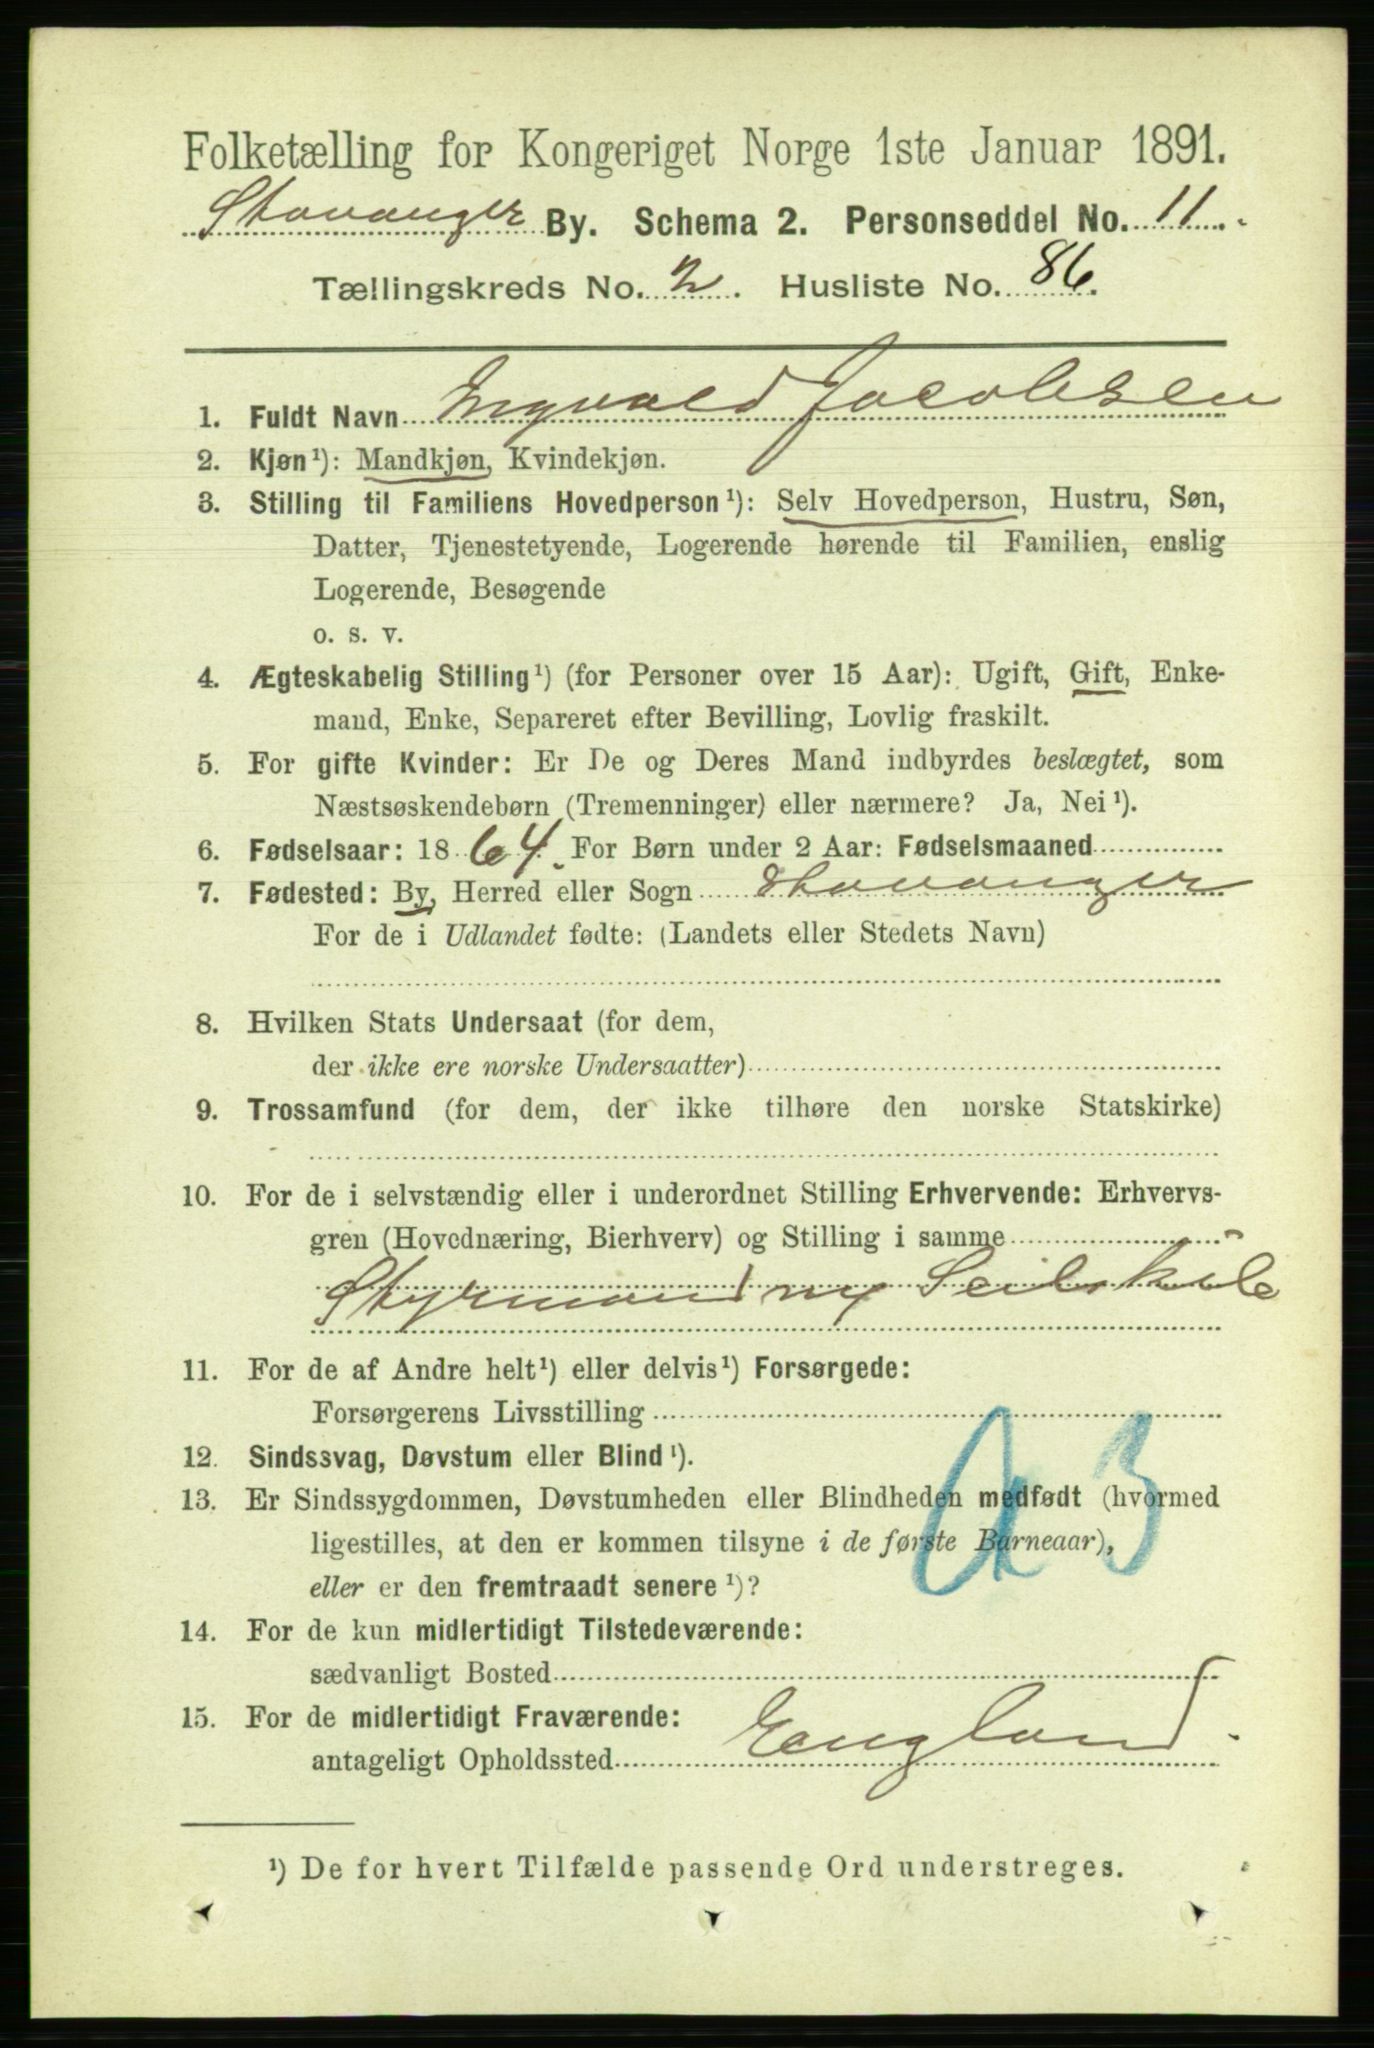 Folketælling for Kongeriget Norge 1ste Januar 1891.
Stavanger By. Schema 2. Personseddel No. 11.
Tællingskreds No. 2. Husliste No. 86.
1. Fuldt Navn Ingvald Jacobsen
2. Kjøn¹): Mandkjøn, Kvindekjøn.
3. Stilling til Familiens Hovedperson¹): Selv Hovedperson, Hustru, Søn,
Datter, Tjenestetyende, Logerende hørende til Familien, enslig
Logerende, Besøgende
o. s. v.
4. Ægteskabelig Stilling¹) (for Personer over 15 Aar): Ugift, Gift, Enke-
mand, Enke, Separeret efter Bevilling, Lovlig fraskilt.
5. For gifte Kvinder: Er De og Deres Mand indbyrdes beslægtet, som
Næstsøskendebørn (Tremenninger) eller nærmere? Ja, Nei¹).
6. Fødselsaar: 1864. For Børn under 2 Aar: Fødselsmaaned
7. Fødested: By, Herred eller Sogn Stavanger
For de i Udlandet fødte: (Landets eller Stedets Navn)
8. Hvilken Stats Undersaat (for dem,
der ikke ere norske Undersaatter)
9. Trossamfund (for dem, der ikke tilhøre den norske Statskirke)
10. For de i selvstændig eller i underordnet Stilling Erhvervende: Erhvervs-
gren (Hovednæring, Bierhverv) og Stilling i samme
Styrmand
11. For de af Andre helt¹) eller delvis¹) Forsørgede:
Forsørgerens Livsstilling
12. Sindssvag, Døvstum eller Blind¹).
13. Er Sindssygdommen, Døvstumheden eller Blindheden medfødt (hvormed
ligestilles, at den er kommen tilsyne i de første Barneaar),
eller er den fremtraadt senere¹)?
14. For de kun midlertidigt Tilstedeværende:
sædvanligt Bosted
15. For de midlertidigt Fraværende:
antageligt Opholdssted England.
¹) De for hvert Tilfælde passende Ord understreges.